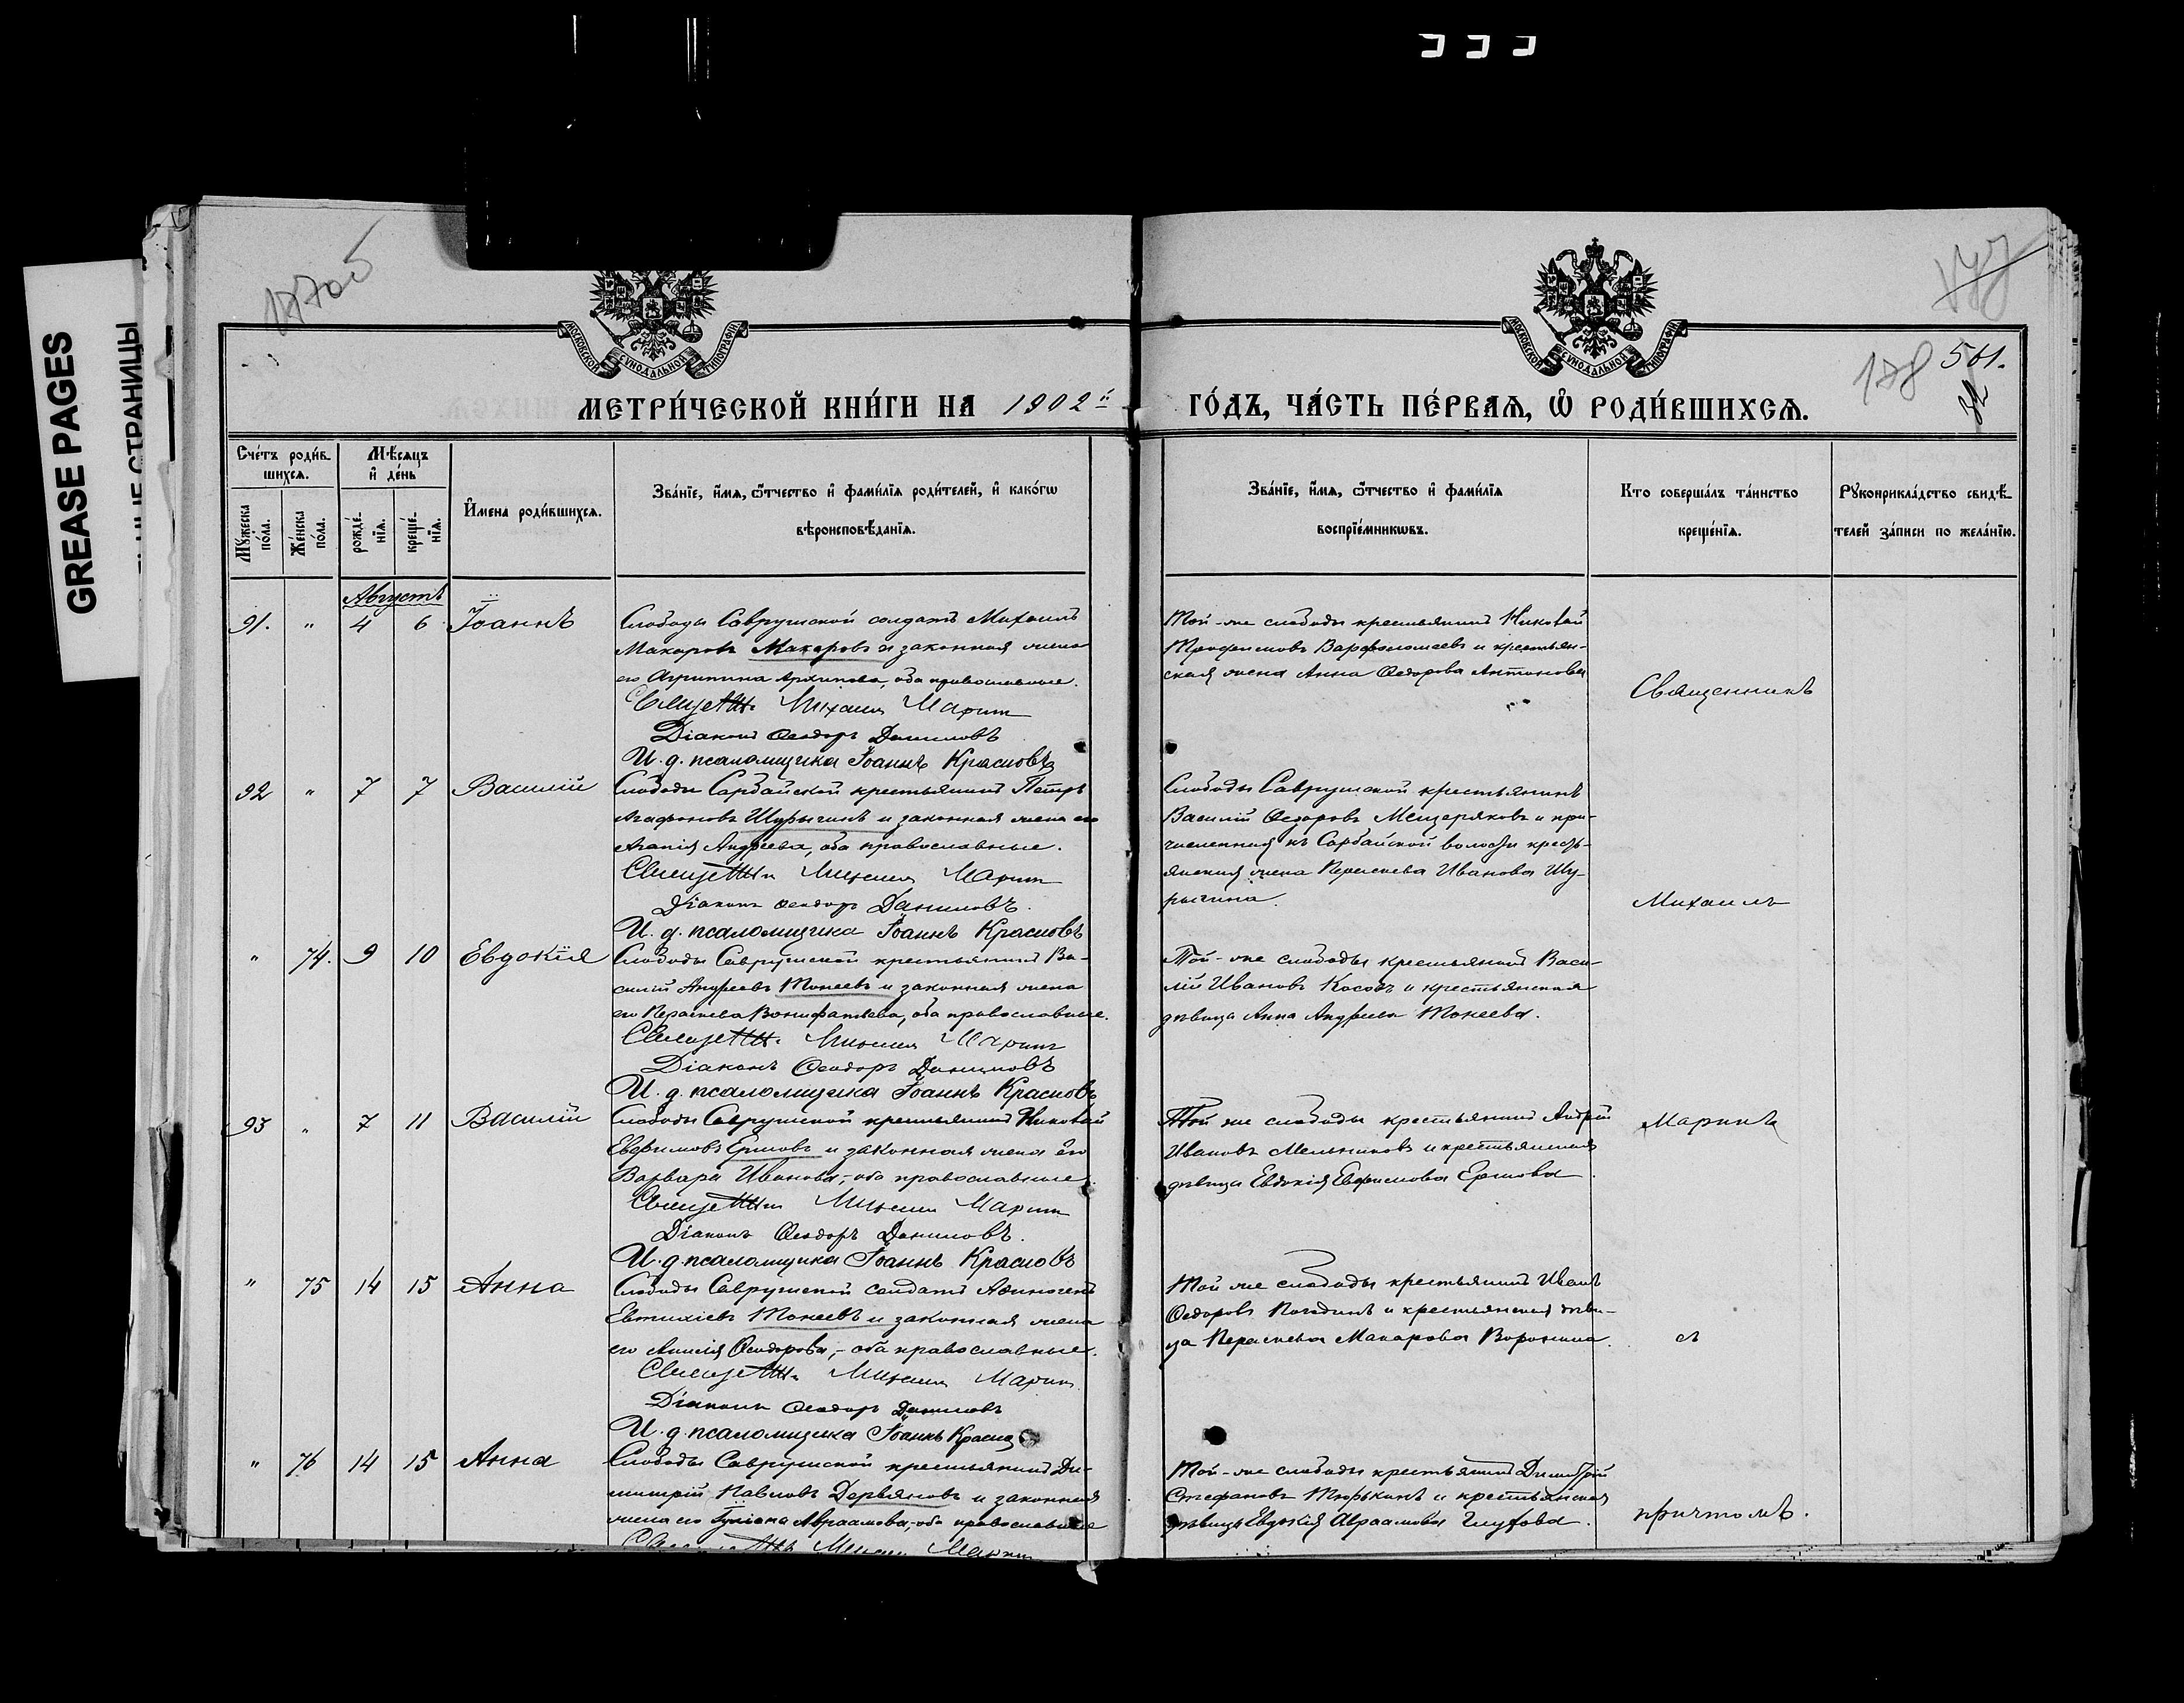 GREASE PAGES
СТРАНИЦЫ
177об
178
561.
82
МОСКОВСКОЙ СѴНОДАЛЬНОЙ ТИПОГРАФІИ
МОСКОВСКОЙ СѴНОДАЛЬНОЙ ТИПОГРАФІИ
МЕТРИ́ЧЕСКОЙ КНИ́ГИ НА 1902й ГО́ДЪ, ЧА́СТЬ ПЕ́РВАѦ, Ѽ РОДИ́ВШИХСѦ.
Сче́тъ роди́в-
шихсѧ.
Мꙋ́жеска по́ла.
Же́нска по́ла.
Мѣ́сѧцъ и҆ де́нь
рожде́-нїѧ.
креще́-нїѧ.
И҆мена роди́вшихсѧ.
Зва́нїе, и҆́мѧ, ѻ҆́тчество и҆ фами́лїѧ роди́телей, и҆ како́гѡ
вѣроисповѣ́данїѧ.
Зва́нїе, и҆́мѧ, ѻ҆́тчество и҆ фами́лїѧ
воспрїе́мникѡвъ.
Кто соверша́лъ та́инство
креще́нїѧ.
Рꙋкоприкла́дство свидѣ́-
телей за́писи по жела́нїю.
Августъ
91. " 4 6 Іоаннъ
Слободы Саврушской солдатъ Михаилъ
Макаровъ Макаровъ и законная жена
его Агрипина Архипова, оба православные.
Священ. Михаилъ Маринъ
Діаконъ Ѳеодоръ Даниловъ
И. д. псаломщика Іоаннъ Красновъ
Той-же слободы крестьянинъ Николай
Трофимовъ Варфоломеевъ и крестьян-
ская жена Анна Ѳедорова Антонова
Священникъ
92 " 7 7 Василій
Слободы Сарбайской крестьянинъ Петръ
Агафоновъ Шурыгинъ и законная жена его
Агапія Андреева, оба православные.
Священ. Михаилъ Маринъ
Діаконъ Ѳеодоръ Даниловъ.
И. д. псаломщика Іоаннъ Красновъ
Слободы Саврушской крестьянинъ
Василій Ѳедоровъ Мещеряковъ и при-
численная къ Сарбайской волости кресть-
янская жена Параскева Иванова Шу-
рыгина.
Михаилъ
" 74. 9 10 Евдокія
Слободы Саврушской крестьянинъ Ва-
силій Андреевъ Мокеевъ и законная жена
его Параскева Вонифатьева, оба православные.
Священ. Михаилъ Маринъ
Діаконъ Ѳеодоръ Даниловъ
И. д. псаломщика Іоаннъ Красновъ
Той-же слободы крестьянинъ Васи-
лій Ивановъ Косовъ и крестьянская
дѣвица Анна Андреева Мокеева.
93 " 7 11 Василій
Слободы Саврушской крестьянинъ Николай
Евфимовъ Ершовъ и законная жена его
Варвара Иванова, оба православные
Священ. Михаилъ Маринъ
Діаконъ Ѳеодоръ Даниловъ.
И. д. псаломщика Іоаннъ Красновъ
Той же слободы крестьянинъ Андрей
Ивановъ Мельниковъ и крестьянская
дѣвица Евдокія Евфимова Ершова
Маринъ
" 75 14 15 Анна
Слободы Саврушской солдатъ Аѳиногенъ
Евтихіевъ Мокеевъ и законная жена
его Ѳеодорова, оба православные.
Священ. Михаилъ Маринъ
Діаконъ Ѳеодоръ Даниловъ
И. д. псаломщика Іоаннъ Красно
Той же слободы крестьянинъ Иванъ
Ѳедоровъ Погодинъ и крестьянская дѣви-
ца Параскева Макарова Воронина.
съ
" 76 14 15 Анна
Слободы Саврушской крестьянинъ Ди-
митрій Павловъ Дервяновъ и законная
жена его Іуліана Авраамова, оба православные
Священ. Михаилъ Маринъ
Той-же слободы крестьянинъ Димитрій
Стефановъ Тюрькинъ и крестьянская
дѣвица Евдокія Авраамова Глухова.
причтомъ.